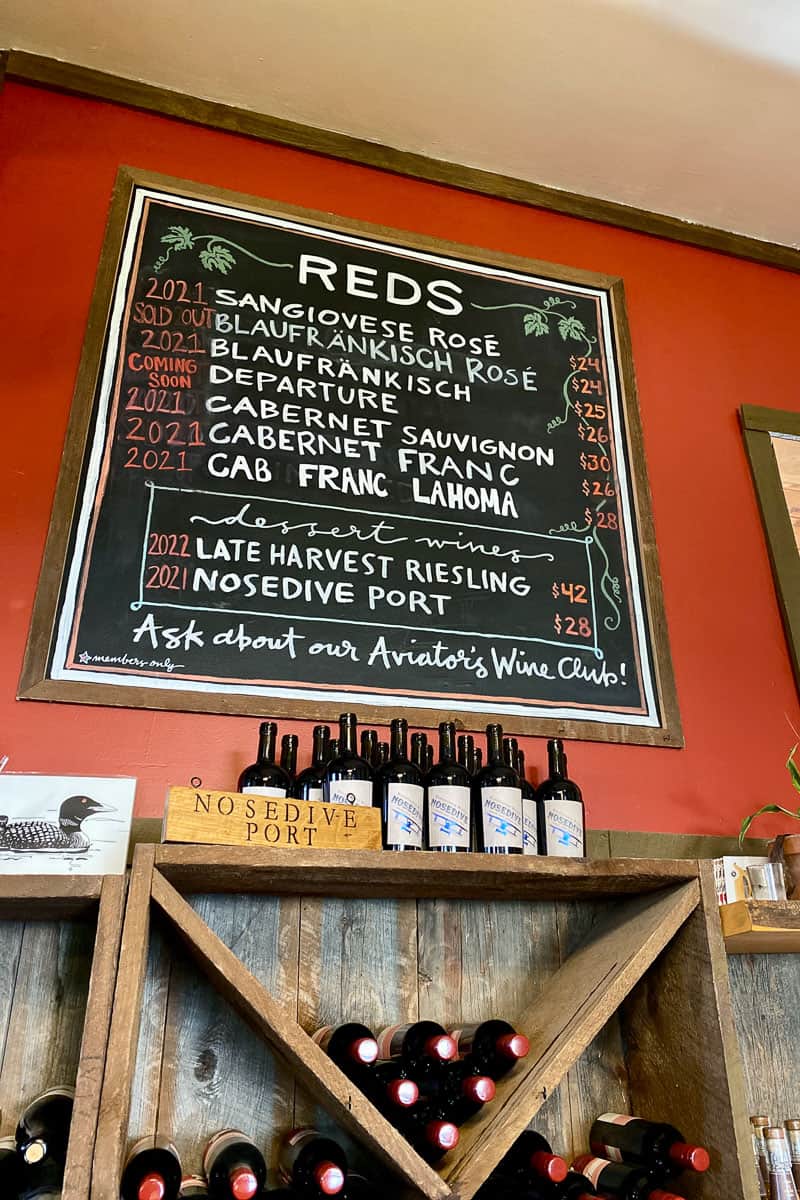 REDS
2021 SANGIOVESE ROSÉ $24
SOLD OUT BLAUFRÄNKISCH ROSÉ $24
2021 BLAUFRÄNKISCH $25
COMING SOON DEPARTURE $26
2021 CABERNET SAUVIGNON $30
2021 CABERNET FRANC $26
2021 CAB FRANC LAHOMA $28
dessert wines
2022 LATE HARVEST RIESLING $42
2021 NOSEDIVE PORT $28
Ask about our Aviator's Wine Club!
members only
NOSEDIVE
PORT
NOSEDIVE
NOSEDIVE
NOSEDIVE
NOSEDIVE